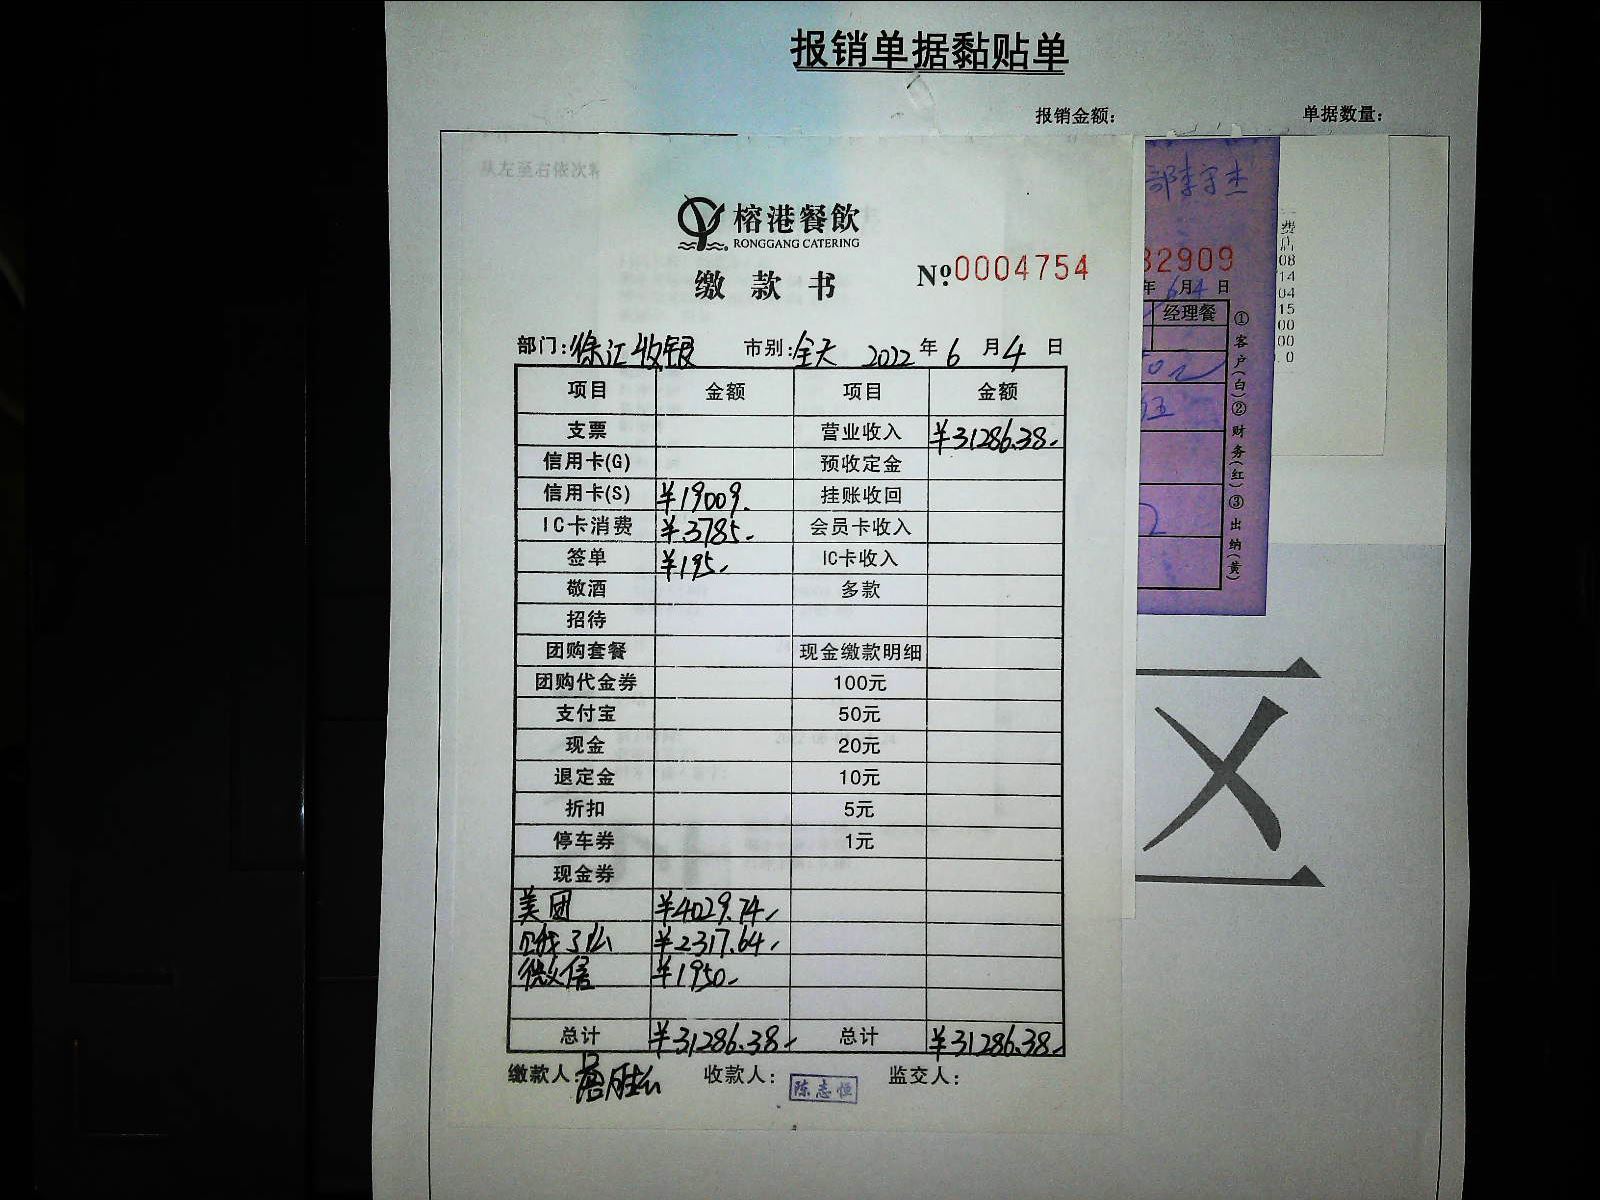 报销单据黏贴单
报销金额: 单据数量:
从左至右依次
榕港餐飲
RONGGANG CATERING
缴款书 №0004754
部门:徐汇收银 市别:全天 2022年6月4日
项目 金额 项目 金额
支票 营业收入 ¥31286.38
信用卡(G) 预收定金
信用卡(S) ¥19009. 挂账收回
IC卡消费 ¥3785. 会员卡收入
签单 ¥195. IC卡收入
敬酒 多款
招待
团购套餐 现金缴款明细
团购代金券 100元
支付宝 50元
现金 20元
退定金 10元
折扣 5元
停车券 1元
现金券
美团 ¥4029.74
饿了么 ¥2317.64
微信 ¥1950
总计 ¥31286.38 总计 ¥31286.38
缴款人: 收款人: 陈志恒 监交人:
部李宇杰
32909
年6月4日
经理餐
①客户(白)②财务(红)③出纳(黄)
费
08
14
04
15
00
00
.0
区